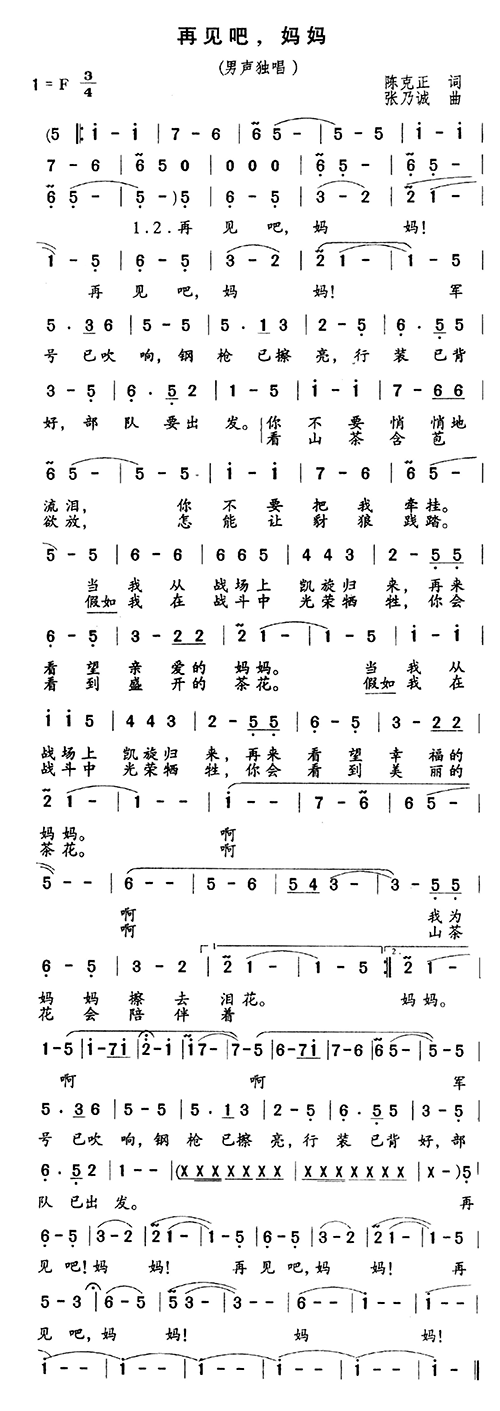 再见吧，妈妈
(男声独唱)
1=F 3/4
陈克正 词
张乃诚 曲
(5 ‖: i - i | 7 - 6 | 6 5 - | 5 - 5 | i - i |
7 - 6 | 6 5 0 | 0 0 0 | 6 5 - | 6 5 - |
6 5 - | 5 - ) 5 | 6 - 5 | 3 - 2 | 2 1 - |
1.2.再 见 吧， 妈 妈!
1 - 5 | 6 - 5 | 3 - 2 | 2 1 - | 1 - 5 |
再 见 吧， 妈 妈! 军
5 . 3 6 | 5 - 5 | 5 . 1 3 | 2 - 5 | 6 . 5 5 |
号 已吹 响，钢 枪 已擦 亮，行 装 已背
3 - 5 | 6 . 5 2 | 1 - 5 | i - i | 7 - 6 6 |
好，部 队 要出 发。你 不 要 悄 悄地
看 山 茶 含 苞
6 5 - | 5 - 5 | i - i | 7 - 6 | 6 5 - |
流泪， 你 不 要 把 我 牵挂。
欲放， 怎 能 让 豺 狼 践踏。
5 - 5 | 6 - 6 | 6 6 5 | 4 4 3 | 2 - 5 5 |
当 我 从 战场上 凯旋归 来，再来
假如 我 在 战斗中 光荣牺 牲，你会
6 - 5 | 3 - 2 2 | 2 1 - | 1 - 5 | i - i |
看 望 亲 爱的 妈妈。 当 我 从
看 到 盛 开的 茶花。 假如 我 在
i i 5 | 4 4 3 | 2 - 5 5 | 6 - 5 | 3 - 2 2 |
战场上 凯旋归 来，再来 看 望 幸 福的
战斗中 光荣牺 牲，你会 看 到 美 丽的
2 1 - | 1 - - | i - - | 7 - 6 | 6 5 - |
妈妈。 啊
茶花。 啊
5 - - | 6 - - | 5 - 6 | 5 4 3 - | 3 - 5 5 |
啊 我为
啊 山茶
6 - 5 | 3 - 2 | 1 2 1 - | 1 - 5 :‖ 2. 2 1 - |
妈 妈 擦 去 泪花。 妈妈。
花 会 陪 伴 着
1 - 5 | i - 7 i | 2 - i | i 7 - | 7 - 5 | 6 - 7 i | 7 - 6 | 6 5 - | 5 - 5 |
啊 啊 军
5 . 3 6 | 5 - 5 | 5 . 1 3 | 2 - 5 | 6 . 5 5 | 3 - 5 |
号 已吹 响，钢 枪 已擦 亮，行 装 已背 好，部
6 . 5 2 | 1 - - | (X X X X X X X | X X X X X X X | X - ) 5 |
队 已出 发。 再
6 - 5 | 3 - 2 | 2 1 - | 1 - 5 | 6 - 5 | 3 - 2 | 2 1 - | 1 - 5 |
见 吧!妈 妈! 再 见 吧，妈 妈! 再
5 - 3 | 6 - 6 | 5 3 - | 3 - - | 6 - - | i - - | i - - |
见 吧，妈 妈! 妈 妈!
i - - | i - - | i - - | i - - | i - - | i - ‖